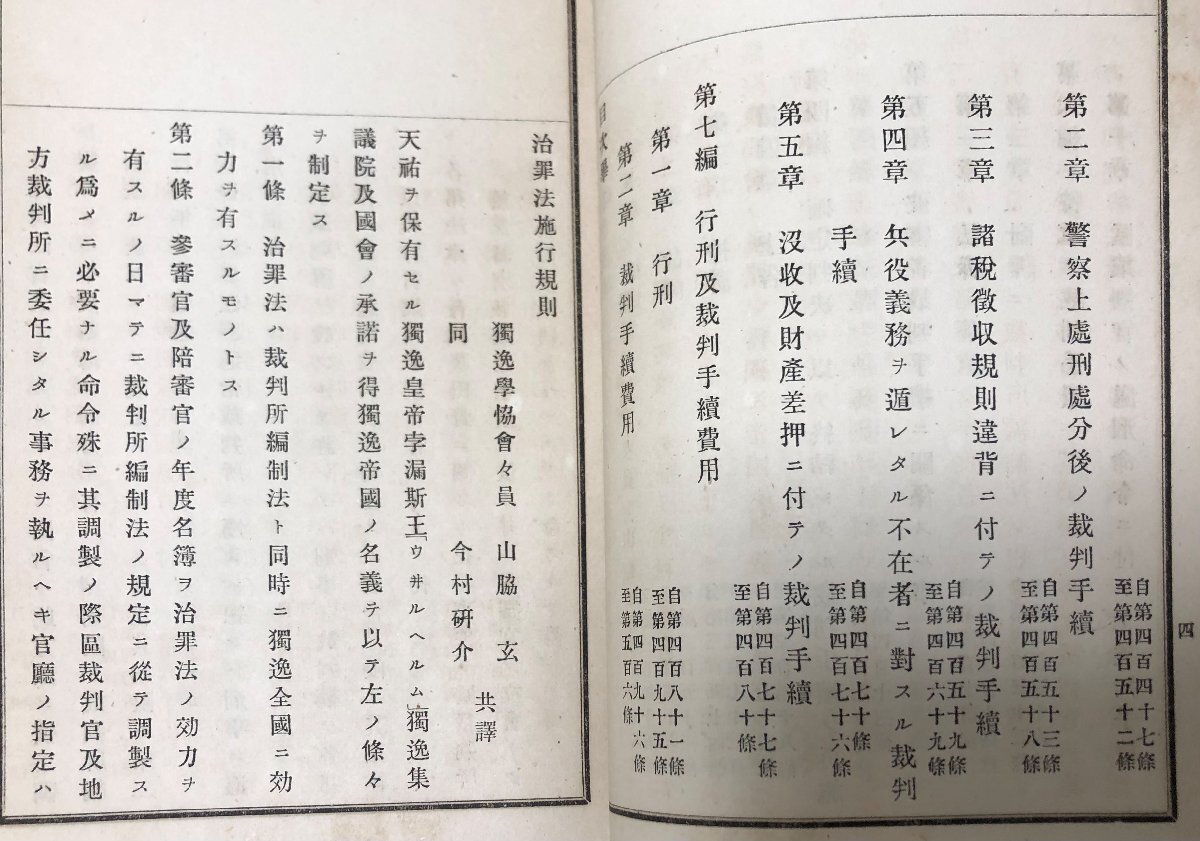 四
第二章　警察上處刑處分後ノ裁判手續
自第四百四十七條
至第四百五十二條
第三章　諸稅徵収規則違背ニ付テノ裁判手續
自第四百五十三條
至第四百五十八條
第四章　兵役義務ヲ遁レタル不在者ニ對スル裁判
手續
自第四百五十九條
至第四百六十九條
第五章　沒收及財產差押ニ付テノ裁判手續
自第四百七十條
至第四百七十六條
自第四百七十七條
至第四百八十條
第七編　行刑及裁判手續費用
第一章　行刑
自第四百八十一條
至第四百九十五條
第二章　裁判手續費用
自第四百九十六條
至第五百六條
治罪法施行規則
獨逸學恊會々員　山脇　玄
同　今村硏介
共譯
天祐ヲ保有セル獨逸皇帝孛漏斯王「ウ井ルヘルム」獨逸集
議院及國會ノ承諾ヲ得獨逸帝國ノ名義ヲ以テ左ノ條々
ヲ制定ス
第一條　治罪法ハ裁判所編制法ト同時ニ獨逸全國ニ効
力ヲ有スルモノトス
第二條　參審官及陪審官ノ年度名簿ヲ治罪法ノ効力ヲ
有スルノ日マテニ裁判所編制法ノ規定ニ從テ調製ス
ル爲メニ必要ナル命令殊ニ其調製ノ際區裁判官及地
方裁判所ニ委任シタル事務ヲ執ルヘキ官廳ノ指定ハ